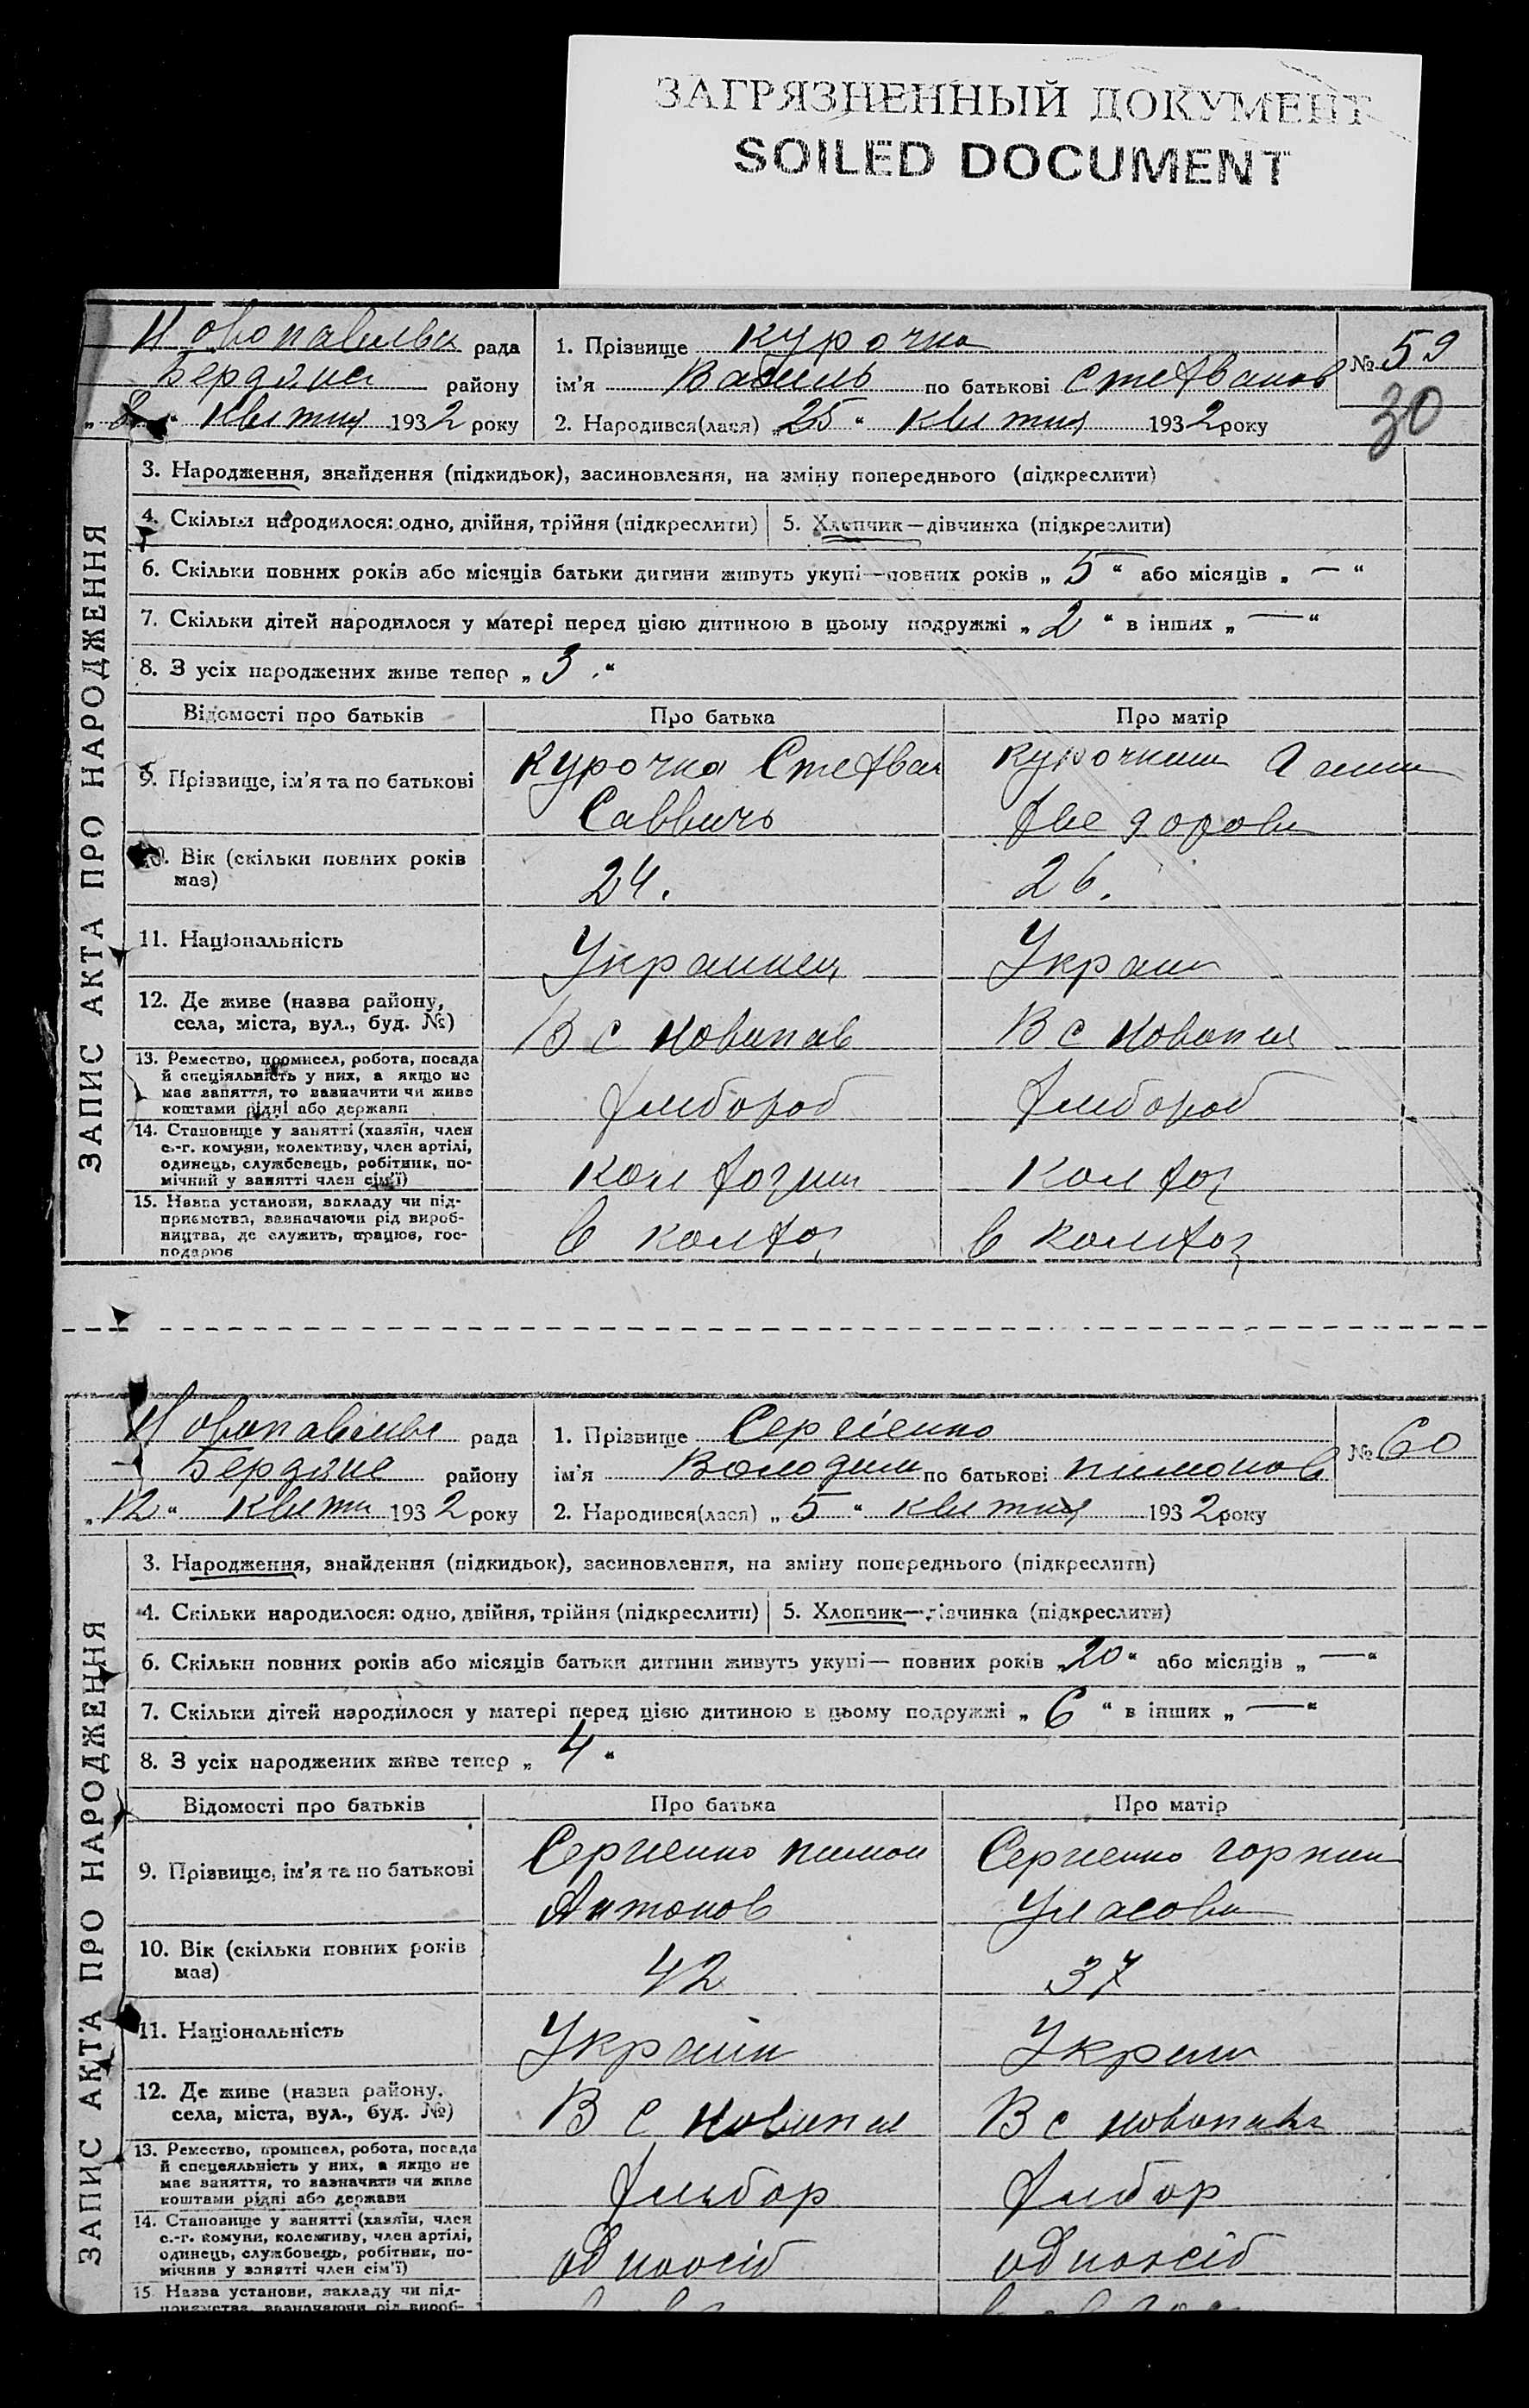 ЗАГРЯЗНЕННЫЙ ДОКУМЕНТ
SOILED DOCUMENT
ЗАПИС АКТА ПРО НАРОДЖЕННЯ
Новопавлівсь рада
Бердянсь району
квітня 1932 року
1. Прізвище Курочка
ім'я Василь по батькові Стефванов
2. Народився(лася) „25“ квітня 1932 року
№ 59
30
3. Народження, знайдення (підкидьок), засиновлення, на зміну попереднього (підкреслити)
4. Скільки народилося: одно, двійня, трійня (підкреслити)
5. Хлопчик—дівчинка (підкреслити)
6. Скільки повних років або місяців батьки дитини живуть укупі—повних років „5“ або місяців „—“
7. Скільки дітей народилося у матері перед цією дитиною в цьому подружжі „2“ в інших „—“
8. З усіх народжених живе тепер „3“
Відомості про батьків Про батька Про матір
9. Прізвище, ім'я та по батькові
Курочка Стефван
Саввичь
Ганни
Фведорови
10. Вік (скільки повних років
має)
24. 26.
11. Національність
Украинец Украин
12. Де живе (назва району,
села, міста, вул., буд. №)
В с Новопав В с Новопав
13. Ремество, промисел, робота, посада
й спеціяльність у них, а якщо не
має заняття, то зазначити чи живе
коштами рідні або держави
Хлибороб Хлибороб
14. Становище у занятті (хазяїн, член
с.-г. комуни, колективу, член артілі,
одинець, службовець, робітник, по-
мічний у занятті член сім'ї)
Колхоз
15. Назва установи, закладу чи під-
приємства, зазначаючи рід вироб-
ництва, де служить, працює, гос-
подарює
в колхоз в колхоз
ЗАПИС АКТА ПРО НАРОДЖЕННЯ
Новопавлівсь рада
Бердянс району
„12“ квітн 1932 року
1. Прізвище Сергіенко
ім'я Володим по батькові Пимонов
2. Народився(лася) „5“ квітня 1932 року
№ 60
3. Народження, знайдення (підкидьок), засиновлення, на зміну попереднього (підкреслити)
4. Скільки народилося: одно, двійня, трійня (підкреслити)
5. Хлопчик—дівчинка (підкреслити)
6. Скільки повних років або місяців батьки дитини живуть укупі— повних років „20“ або місяців „—“
7. Скільки дітей народилося у матері перед цією дитиною в цьому подружжі „6“ в інших „—“
8. З усіх народжених живе тепер „4“
Відомості про батьків Про батька Про матір
9. Прізвище, ім'я та по батькові
Сергиенко Пимон
Антонов
Сергиенко Горпин
Уласови
10. Вік (скільки повних років
має)
42 37
11. Національність
Україн Украин
12. Де живе (назва району,
села, міста, вул., буд. №)
В с Новопав В с Новопавл
13. Ремество, промисел, робота, посада
й спецеяльність у них, а якщо не
має заняття, то зазначити чи живе
коштами рідні або держави
Хлибор Хлибор
14. Становище у занятті (хазяїн, член
с.-г. комуни, колективу, член артілі,
одинець, службовець, робітник, по-
мічник у занятті член сім'ї)
одноосіб одноосіб
15. Назва установи, закладу чи під-
приємства, зазначаючи рід вироб-